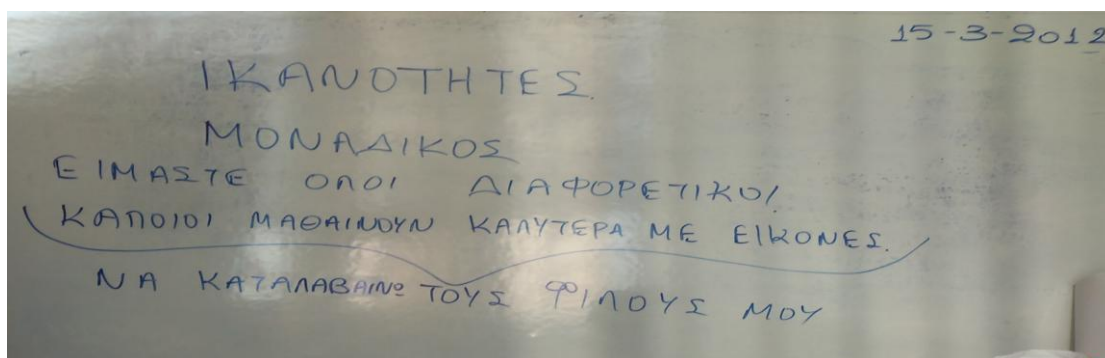 15-3-2012
ΙΚΑΝΟΤΗΤΕΣ.
ΜΟΝΑΔΙΚΟΣ
ΕΙΜΑΣΤΕ ΟΛΟΙ ΔΙΑΦΟΡΕΤΙΚΟΙ
ΚΑΠΟΙΟΙ ΜΑΘΑΙΝΟΥΝ ΚΑΛΥΤΕΡΑ ΜΕ ΕΙΚΟΝΕΣ.
ΝΑ ΚΑΤΑΛΑΒΑΙΝΟ ΤΟΥΣ ΦΙΛΟΥΣ ΜΟΥ